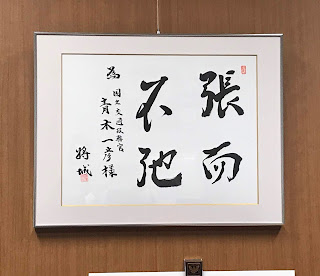 張而
不弛
為
国土交通政務官
青木一彦様
将城